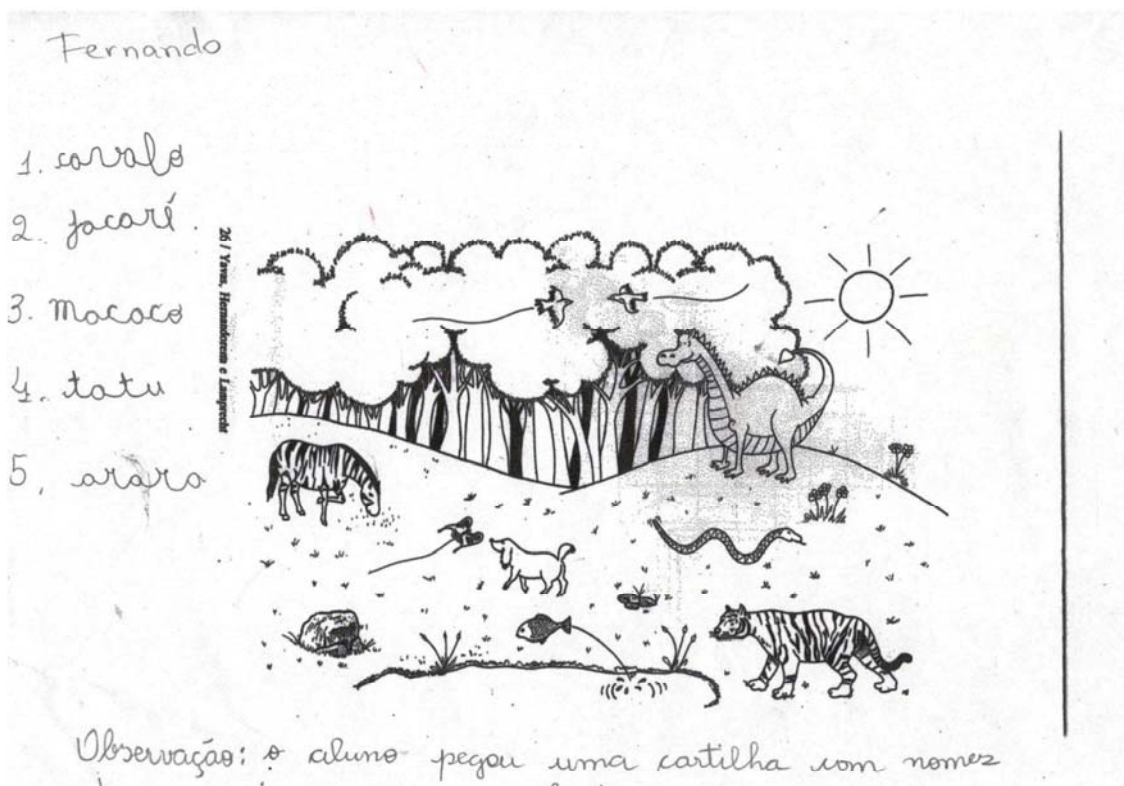 Fernando
1. cavalo
2. jacaré
3. Macaco
4. tatu
5. arara
26 / Yavas, Hernandorena e Lamprecht
Observação: o aluno pegou uma cartilha com nomes